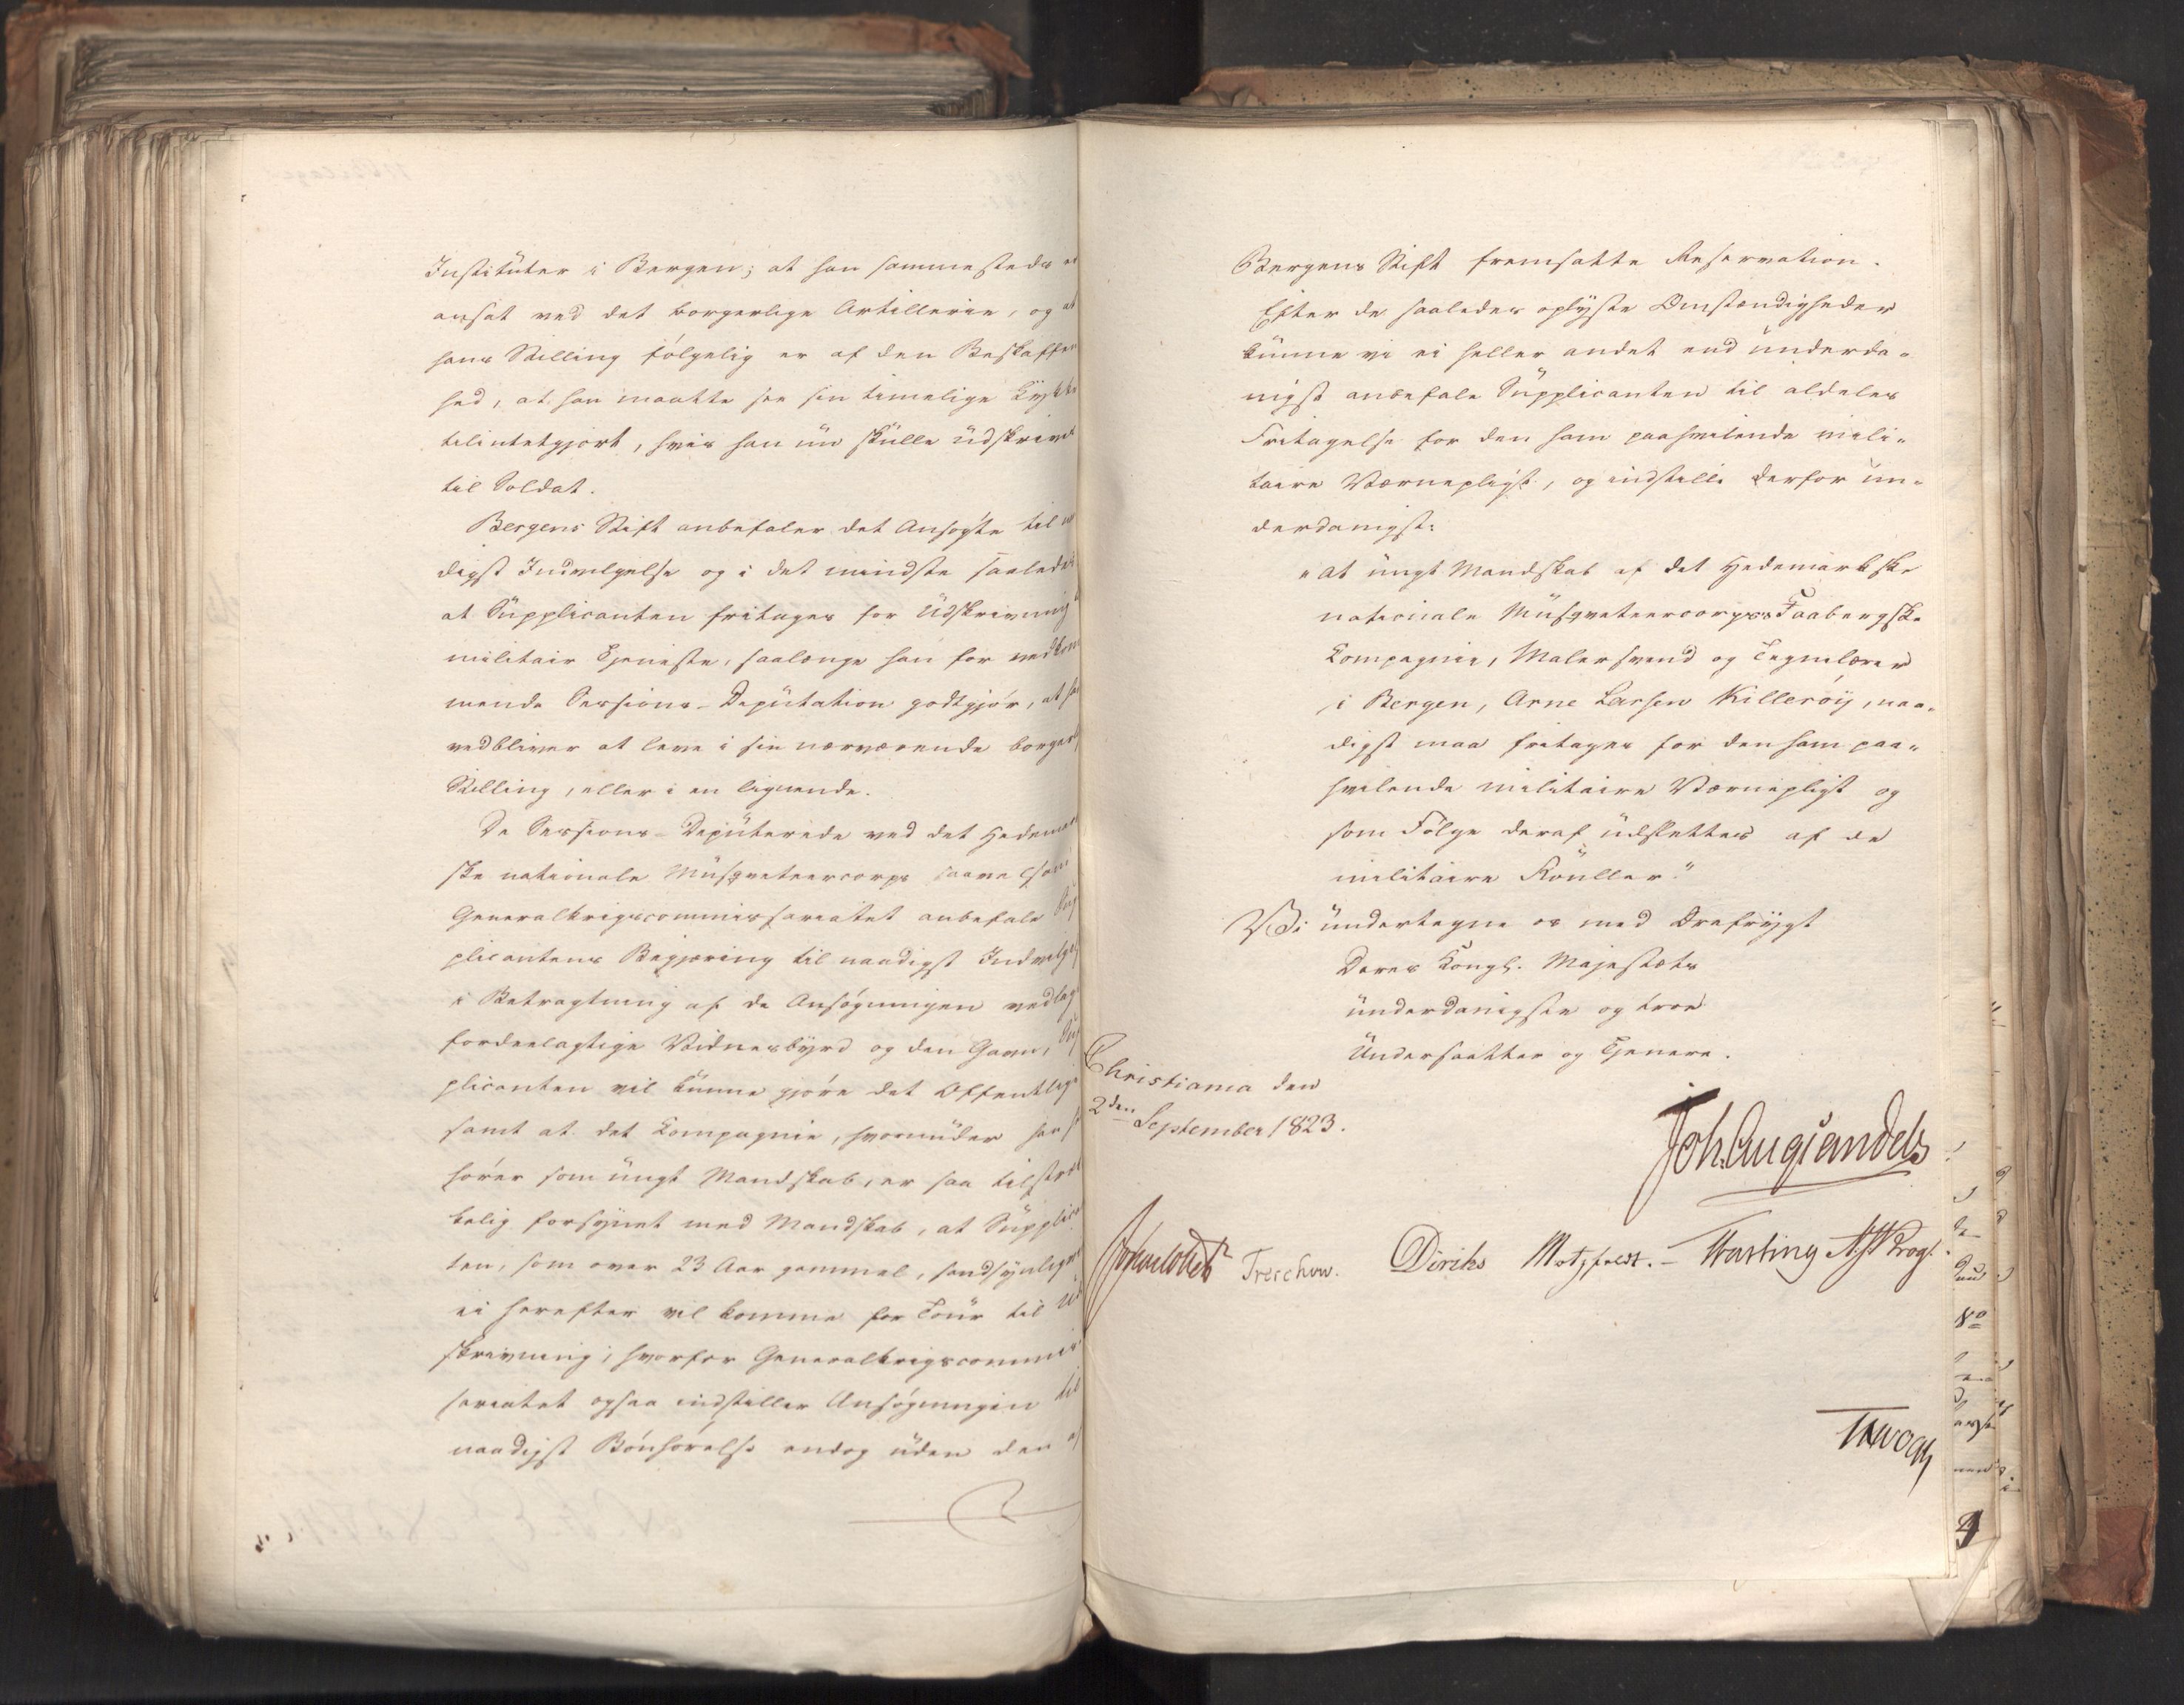 Institüter i Bergen; at han sammesteds er
ansat ved det borgerlige Artillerie, og at
hans Stilling følgelig er af den Beskaffen
hed, at han maatte see sin timelige Lykke
tilintetgjort, hvis han nu skülle üdskrives
til Soldat.
Bergens Stift anbefaler det Ansøgte til
digst Indvilgelse og i det mindste saaledes
at Süpplicanten fritages for Üdskrivning
militair Tjeneste, saalænge han for vedkom
mende Sessions-Depütation godtgjør, at han
vedbliver at leve i sin nærværende borgerl
Stilling, eller i en lignende.
De Sessions-Depüterede ved det Hedemark
ske nationale Müsqveteercorps saavelsom
Generalkrigscommissariatet anbefale Sup
plicantens Begjæring til naadigst Indvilgel
i Betragtning af de Ansøgningen vedlag
fordeelagtige Vidnesbyrd og den Gavn, Sup
plicanten vil künne gjøre det Offentlige
samt at det Compagnie, hvoründer han
hører som üngt Mandskab, er saa tilstræk
kelig forsynet med Mandskab, at Süpplican
ten, som over 23 Aar gammel, sandsynligviis
ei herefter vil komme for Toür til Ud
skrivning; hvorfor Generalkrigscommis
sariatet ogsaa indstiller Ansøgningen til
naadigst Bønhørelse endog üden den af
Bergens Stift fremsatte Reservation.
Efter de saaledes oplyste Omstændigheder
künne vi ei heller andet end ünderda-
nigst anbefale Süpplicanten til aldeles
Fritagelse for den ham paahvilende mili-
taire Værnepligt, og indstille derfor ün-
derdanigst:
"at üngt Mandskab af det Hedemarkske
nationale Müsqveteercorpses Faabergske
Compagnie, Malersvend og Tegnelærer
i Bergen, Arne Larsen Killerøy, naa-
digst maa fritages for den ham paa-
hvilende militaire Værnepligt og
som Følge deraf üdslettes af de
militaire Roüller."
Vi ündertegne os med Ærefrygt
Deres Kongl. Majestæts
ünderdanigste og troe
Ündersaatter og Tjenere.
Christiania den
2den September 1823.
Joh. Aug: Sandels
Treschow. Diriks Motzfeldt. Fasting A. Krog.